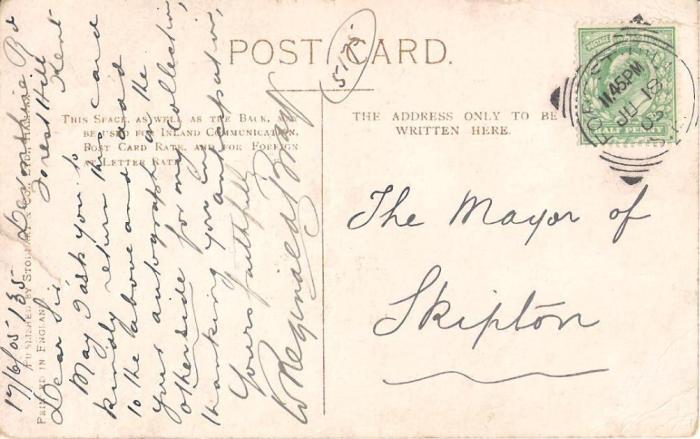 POST CARD.
THIS SPACE, AS WELL AS THE BACK, MAY
BE USED FOR INLAND COMMUNICATION,
POST CARD RATE, AND FOR FOREIGN
AT LETTER RATE.
THE ADDRESS ONLY TO BE
WRITTEN HERE.
5175
11.45PM
JU 18
05
S.E.
HALF PENNY
The Mayor of
Skipton
17/6/05 135 Rd
Forest Hill
Kent
Dear Sir
May I ask you to
kindly return this card
to the above and add
your autograph on the
otherside for my collection,
thanking you in anticipation,
Yours faithfully
W Reginald Bray
PUBLISHED BY
PRINTED IN ENGLAND